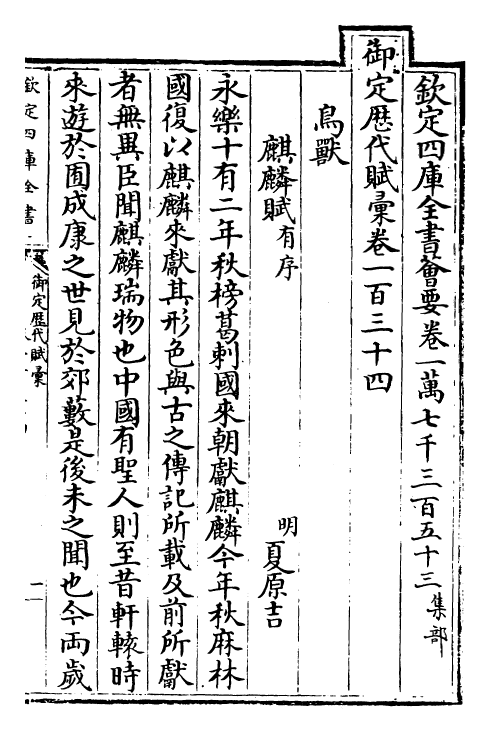 欽定四庫全書薈要卷一萬七千三百五十三集部
御定歷代賦彙卷一百三十四
鳥獸
麒麟賦有序　明夏原吉
永樂十有二年秋榜葛剌國來朝獻麒麟今年秋麻林
國復以麒麟來獻其形色與古之傳記所載及前所獻
者無異臣聞麒麟瑞物也中國有聖人則至昔軒轅時
來遊於囿成康之世見於郊藪是後未之聞也今兩歲
欽定四庫全書
御定歷代賦彙
一